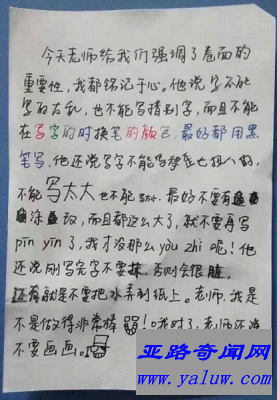 今天老师给我们强调了卷面的
重要性，我都铭记于心。他说字不能
写的太乱，也不能写错别字，而且不能
在写字的时换笔的颜色，最好都用黑
笔写，他还说写字不能写歪七扭八的，
不能写太大也不能写太小，最好不要有
涂改，而且都这么大了，就不要再写
pin yin了，我才没那么yòu zhì呢！他
还说刚写完字不要抹，否则会很脏，
还有就是不要把水弄到纸上。老师，我是
不是做得非常棒啊！哦对了，老师还说
不要画画。
亚路奇闻网
www.yaluw.com